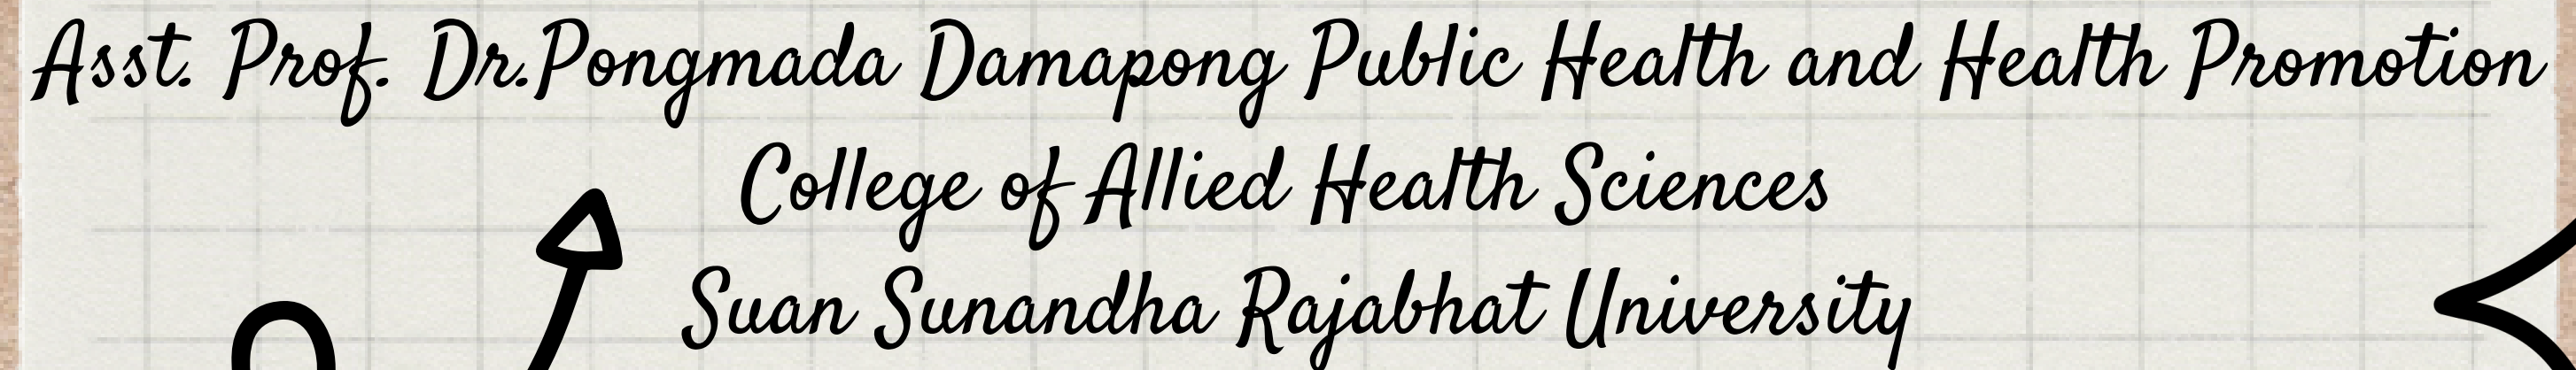 Asst. Prof. Dr.Pongmada Damapong Public Health and Health Promotion
College of Allied Health Sciences
Suan Sunandha Rajabhat University